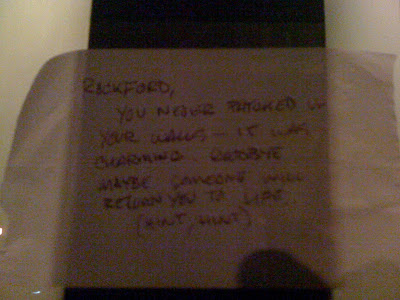 ROCKFORD,
YOU NEVER PATCHED UP
YOUR WALLS – IT WAS
CHARMING. GOODBYE
MAYBE SOMEONE WILL
RETURN YOU TO LIFE.
(HINT, HINT)